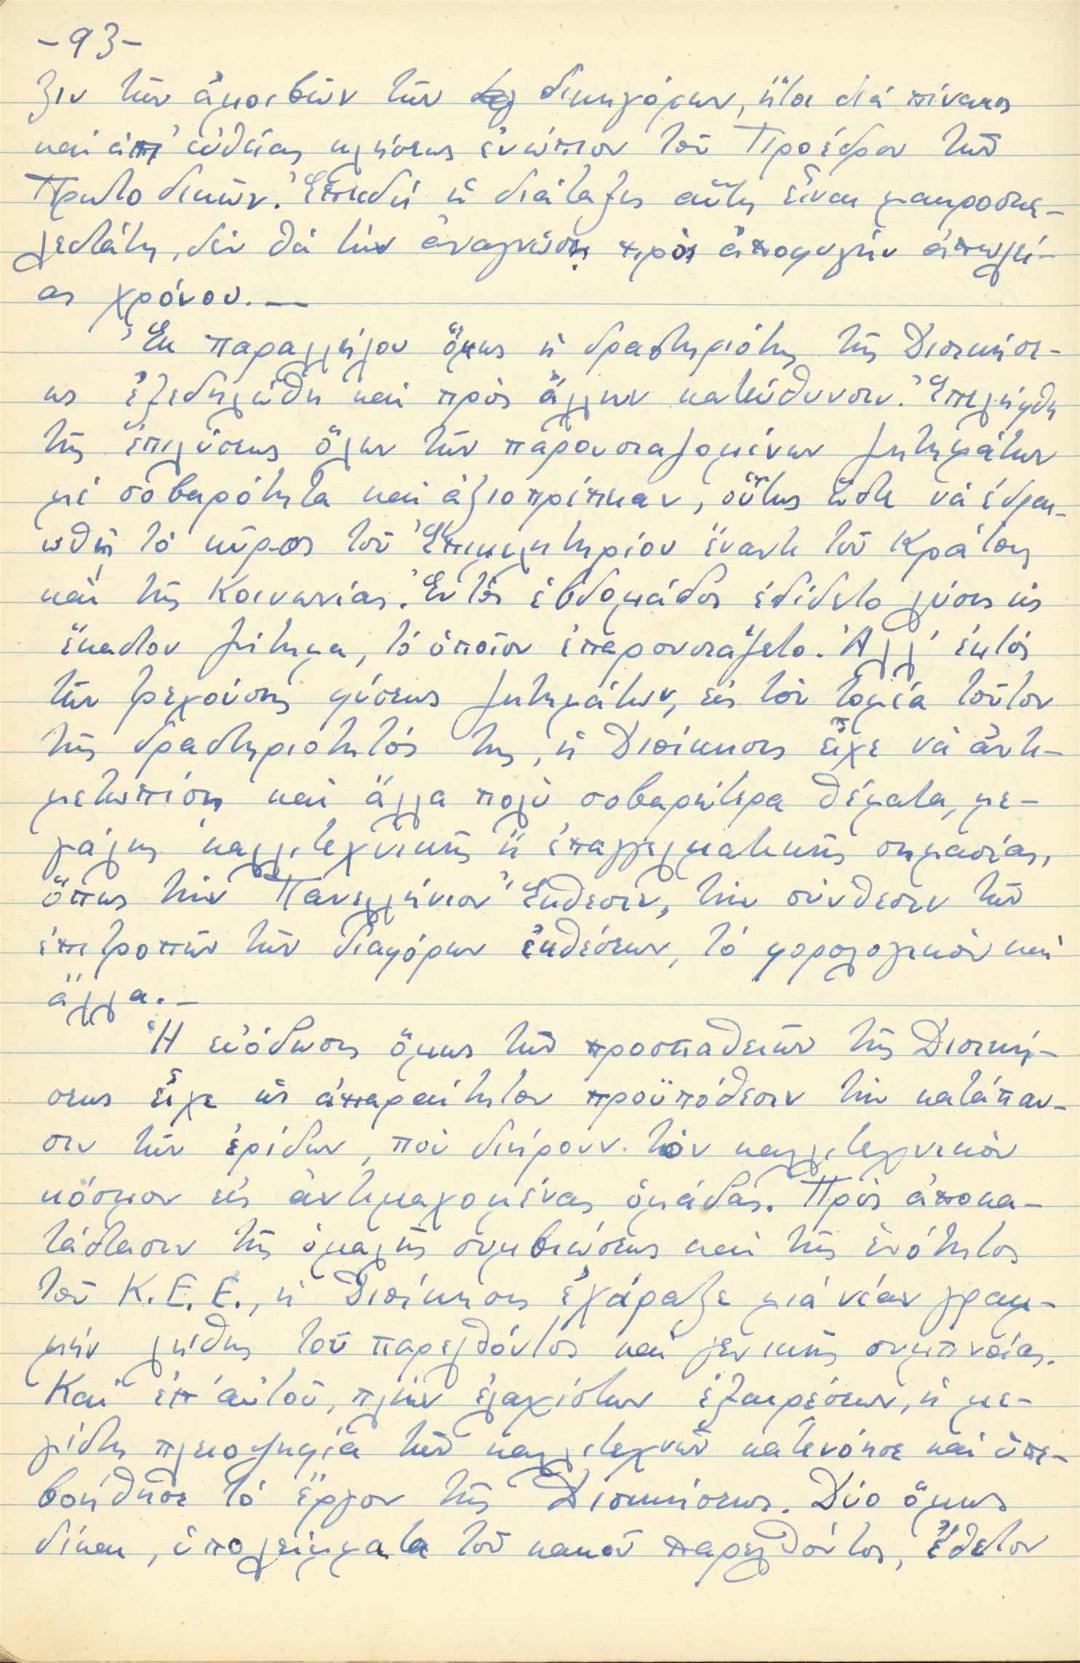 -93-
ξιν τῶν ἀμοιβῶν τῶν δικηγόρων, ἤτοι διά πίνακος
καί ἀπ' εὐθείας κλήσεως ἐνώπιον τοῦ Προέδρου τῶν
Πρωτοδικῶν. Ἐπειδή ἡ διάταξις αὕτη εἶναι μακροσκε-
λεστάτη, δέν θά τήν ἀναγνώσω πρός ἀποφυγήν ἀπωλεί-
ας χρόνου.—
Ἐκ παραλλήλου ὅμως ἡ δραστηριότης τῆς Διοικήσε-
ως ἐξεδηλώθη καί πρός ἄλλην κατεύθυνσιν. Ἐπελήφθη
τῆς ἐπιλύσεως ὅλων τῶν παρουσιαζομένων ζητημάτων
μέ σοβαρότητα καί ἀξιοπρέπειαν, οὕτως ὥστε νά ἑδραι-
ωθῇ τό κῦρος τοῦ Ἐπιμελητηρίου ἔναντι τοῦ Κράτους
καί τῆς Κοινωνίας. Ἐντός ἑβδομάδος ἐδίδετο λύσις εἰς
ἕκαστον ζήτημα, τό ὁποῖον ἐπαρουσιάζετο. Ἀλλ' ἐκτός
τῶν τρεχούσης φύσεως ζητημάτων, εἰς τόν τομέα τοῦτον
τῆς δραστηριότητός της, ἡ Διοίκησις εἶχε νά ἀντι-
μετωπίσῃ καί ἄλλα πολύ σοβαρώτερα θέματα, με-
γάλης καλλιτεχνικῆς ἤ ἐπαγγελματικῆς σημασίας,
ὅπως τήν Πανελλήνιον Ἔκθεσιν, τήν σύνθεσιν τῶν
ἐπιτροπῶν τῶν διαφόρων ἐκθέσεων, τό φορολογικόν καί
ἄλλα.—
Ἡ εὐόδωσις ὅμως τῶν προσπαθειῶν τῆς Διοική-
σεως εἶχε ὡς ἀπαραίτητον προϋπόθεσιν τήν κατάπαυ-
σιν τῶν ἐρίδων, πού διῄρουν τόν καλλιτεχνικόν
κόσμον εἰς ἀντιμαχομένας ὁμάδας. Πρός ἀποκα-
τάστασιν τῆς ὁμαλῆς συμβιώσεως καί τῆς ἑνότητος
τοῦ Κ.Ε.Ε., ἡ Διοίκησις ἐχάραξε μιά νέαν γραμ-
μήν λήθης τοῦ παρελθόντος καί γενικῆς συμπνοίας.
Καί ἐπ' αὐτοῦ, πλήν ἐλαχίστων ἐξαιρέσεων, ἡ με-
γίστη πλειοψηφία τῶν καλλιτεχνῶν κατενόησε καί ὑπε-
βοήθησε τό ἔργον τῆς Διοικήσεως. Δύο ὅμως
δίκαι, ὑπολείμματα τοῦ κακοῦ παρελθόντος, ἔθετον